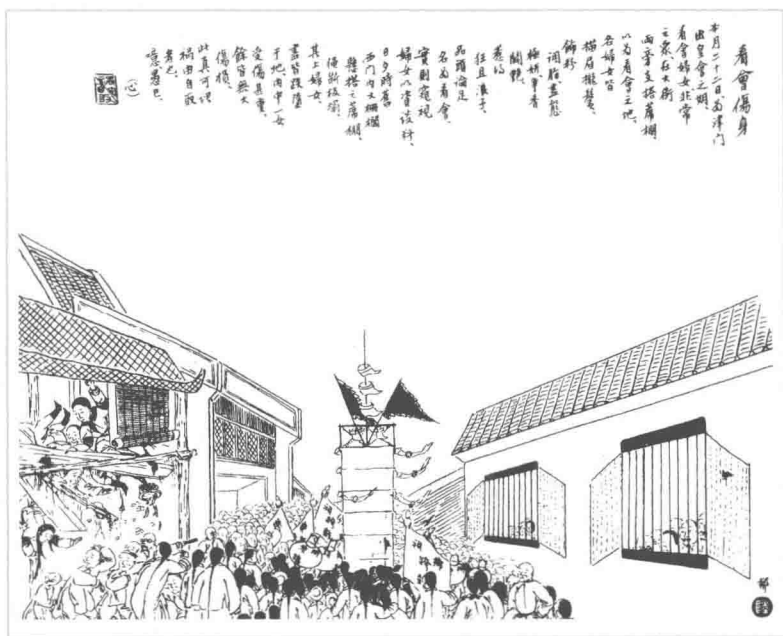 看會傷身
本月二十二日,為津門
出皇會之期,
看會婦女非常
之眾,在大街
兩旁支搭蓆棚,
以為看會之地,
各婦女皆
描眉攏鬢,
飾粉
調脂,盡態
極妍,爭香
鬪艷,
惹的
狂且浪子,
品頭論足,
名為看會,
實則窺視
婦女,以資談料。
日夕時,舊
西門內大柵欄
搭之蓆棚,
板
其上婦女
盡皆跌墮
于地,內中一女
受傷甚重,
餘皆無大
傷損。
此真可謂
禍由自取
者也。
噫,愚也。
(心)